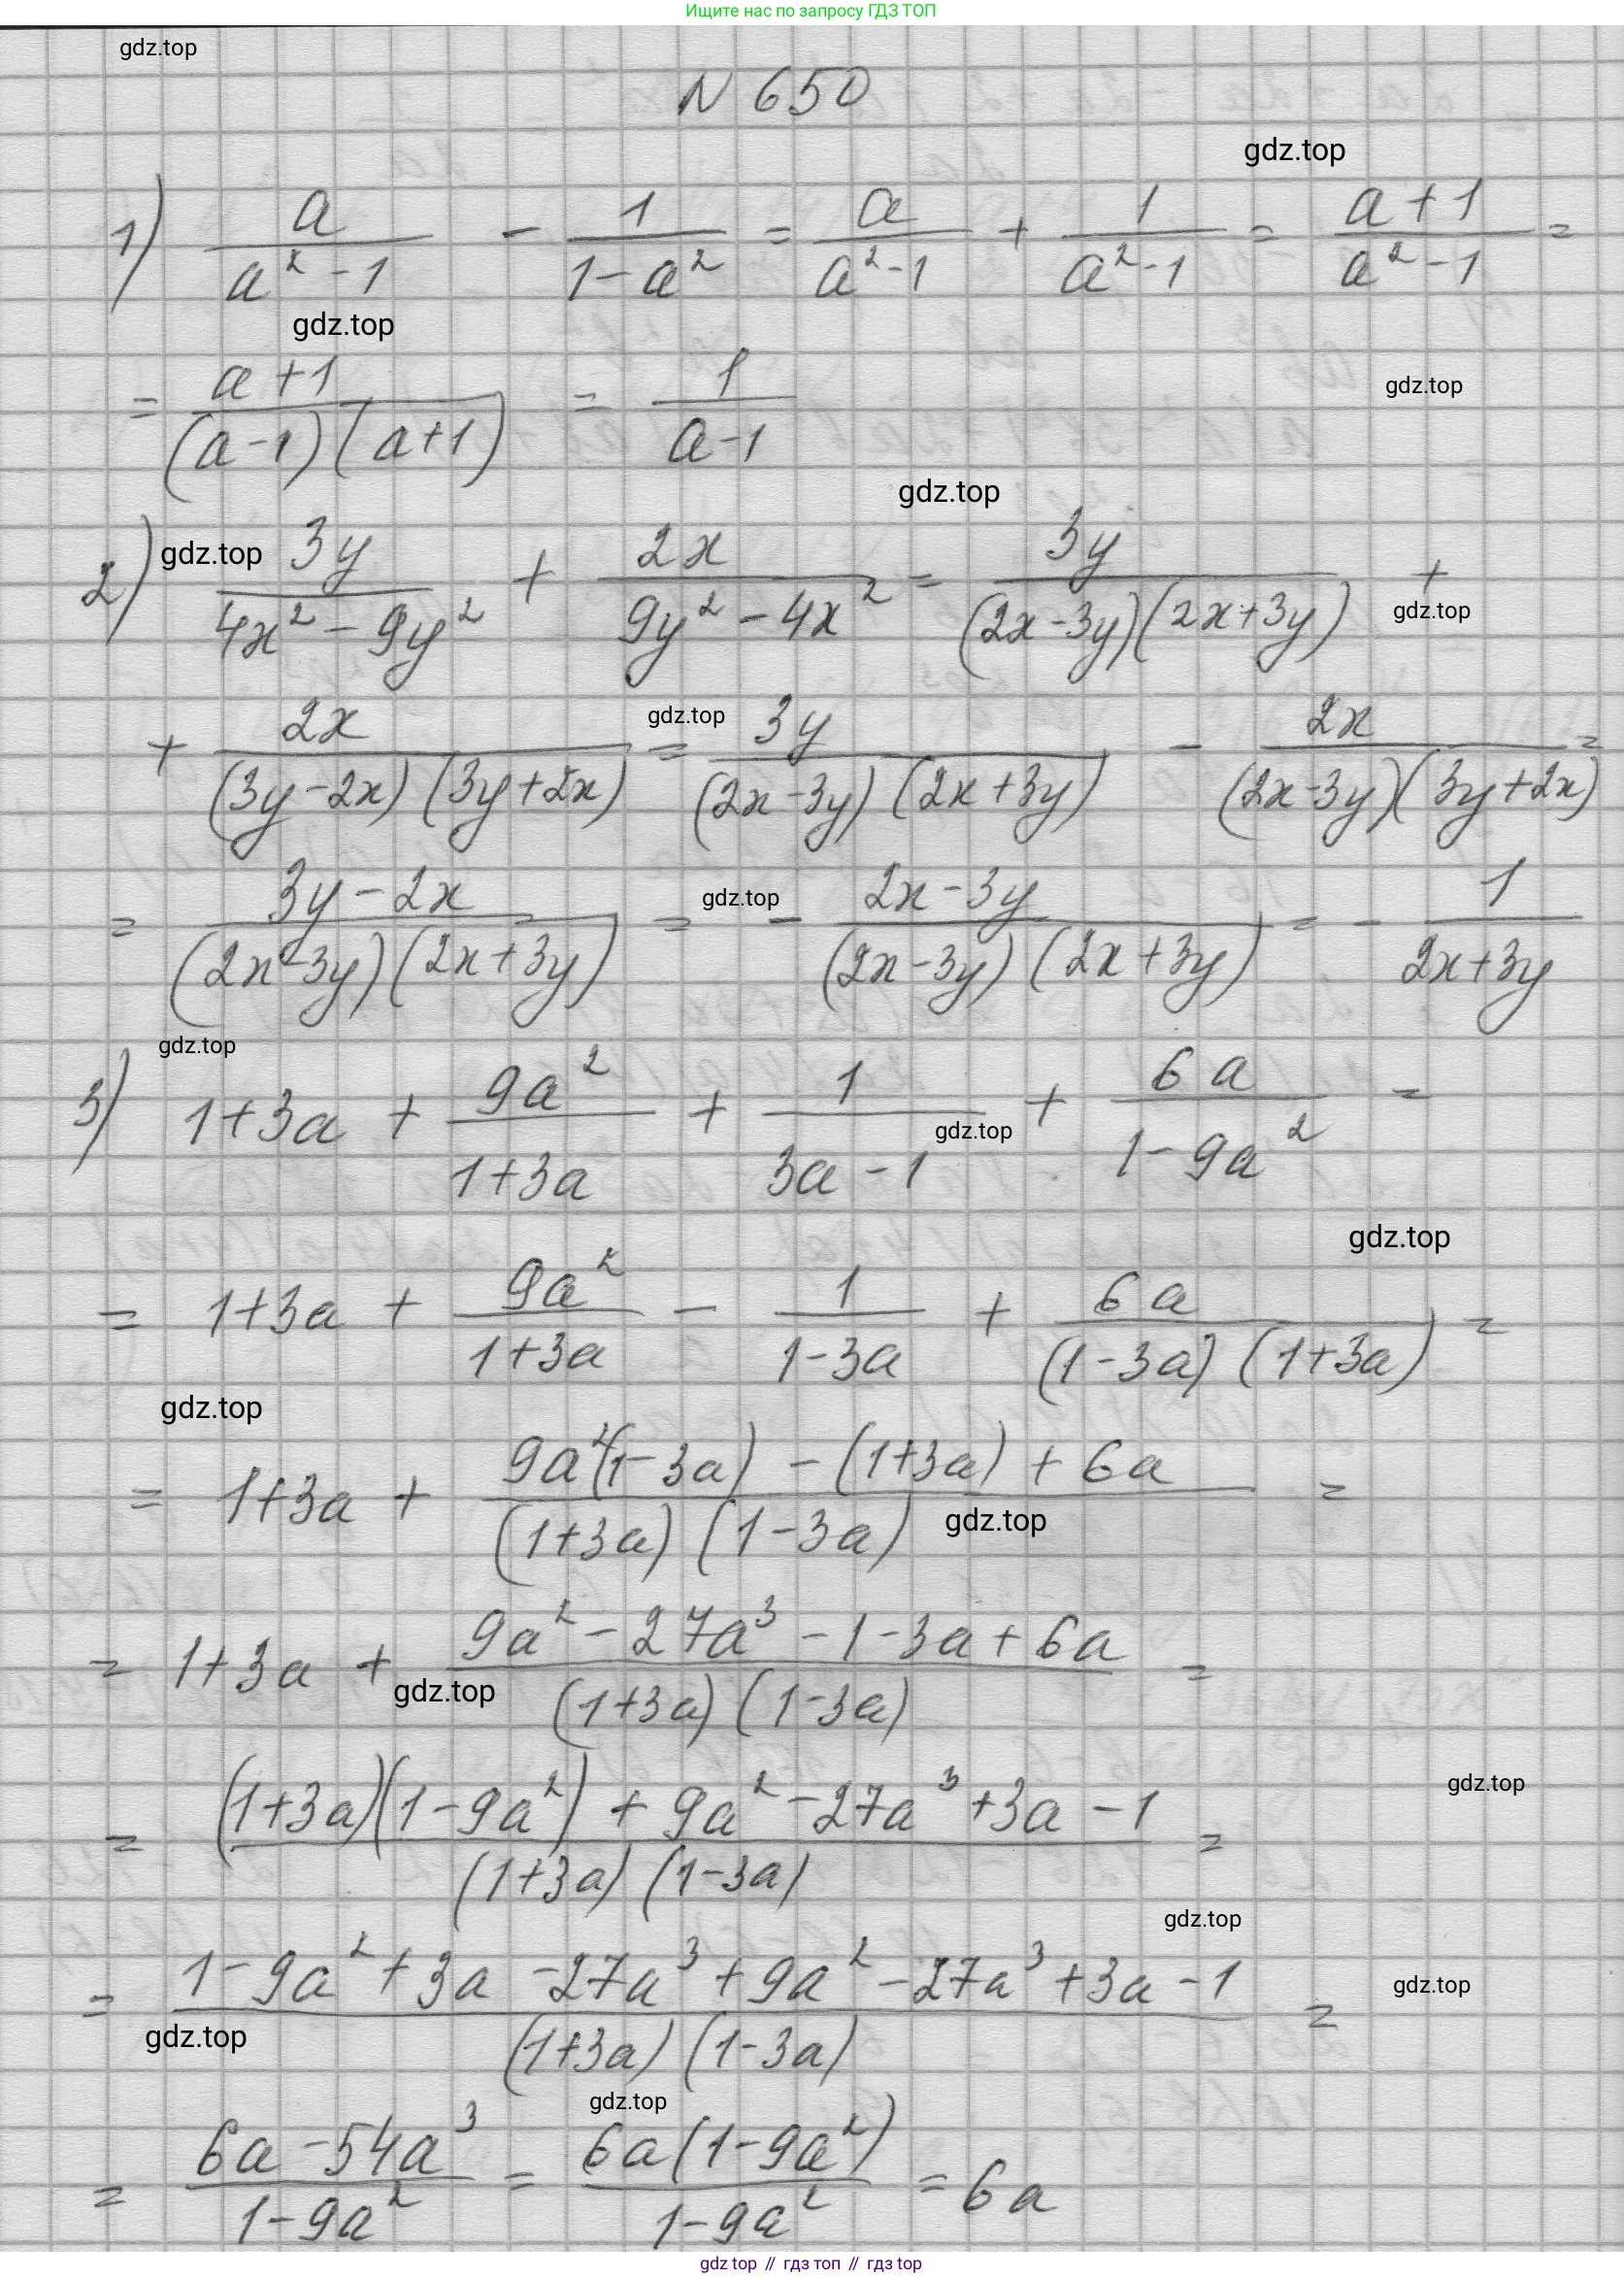 Ищите нас по запросу ГДЗ ТОП
gdz.top
N 650
gdz.top
1) a/(a² - 1) - 1/(1 - a²) = a/(a² - 1) + 1/(a² - 1) = (a + 1)/(a² - 1) =
gdz.top
= (a + 1)/((a - 1)(a + 1)) = 1/(a - 1)
gdz.top
gdz.top
2) gdz.top 3y/(4x² - 9y²) + 2x/(9y² - 4x²) = 3y/((2x - 3y)(2x + 3y)) +
gdz.top
+ 2x/((3y - 2x)(3y + 2x)) = 3y/((2x - 3y)(2x + 3y)) - 2x/((2x - 3y)(3y + 2x)) =
gdz.top
= (3y - 2x)/((2x - 3y)(2x + 3y)) = - (2x - 3y)/((2x - 3y)(2x + 3y)) = - 1/(2x + 3y)
gdz.top
gdz.top
3) 1 + 3a + 9a²/(1 + 3a) + 1/(3a - 1) + 6a/(1 - 9a²) =
gdz.top
gdz.top
= 1 + 3a + 9a²/(1 + 3a) - 1/(1 - 3a) + 6a/((1 - 3a)(1 + 3a)) =
gdz.top
= 1 + 3a + (9a²(1 - 3a) - (1 + 3a) + 6a)/((1 + 3a)(1 - 3a)) =
gdz.top
= 1 + 3a + (9a² - 27a³ - 1 - 3a + 6a)/((1 + 3a)(1 - 3a)) =
gdz.top
gdz.top
= ((1 + 3a)(1 - 9a²) + 9a² - 27a³ + 3a - 1)/((1 + 3a)(1 - 3a)) =
gdz.top
= (1 - 9a² + 3a - 27a³ + 9a² - 27a³ + 3a - 1)/((1 + 3a)(1 - 3a)) =
gdz.top
gdz.top
gdz.top
= (6a - 54a³)/(1 - 9a²) = 6a(1 - 9a²)/(1 - 9a²) = 6a
gdz top // гдз топ // гдз top